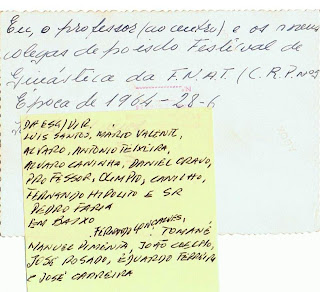 Eu, o professor (ao centro) e os meus
colegas depois do Festival de
Ginástica da F.N.A.T. (C.R.P. nº
Época de 1964 - 28-6
DA ESQ/DIR.
LUIS SANTOS, MÁRIO VALENTE,
ALVARO, ANTONIO TEIXEIRA,
ALVARO CANINHA, DANIEL CRAVO,
PROFESSOR, OLIMPIO, CANILHO,
FERNANDO HIPOLITO E SR
PEDRO FARIA
EM BAIXO
FERNANDO GONÇALVES,
TOMANÉ
MANUEL PIMENTA, JOÃO COELHO,
JOSÉ ROSADO, EDUARDO FERREIRA
E JOSÉ CARREIRA